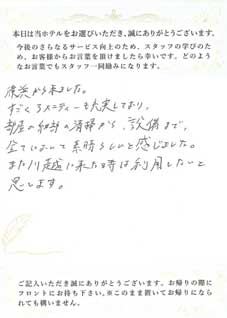 本日は当ホテルをお選びいただき、誠にありがとうございます。
今後のさらなるサービス向上のため、スタッフの学びのため、お客様からお言葉を頂けましたら幸いです。どのようなお言葉でもスタッフ一同励みになります。
横浜から来ました。
すごくアメニティーも充実しており、
部屋の細部の清掃から、設備まで、
全てにおいて素晴らしいと感じました。
また川越に来た時は利用したいと
思います。
ご記入いただき誠にありがとうございます。お帰りの際に
フロントにお持ち下さい。※このまま置いてお帰りになら
れても構いません。